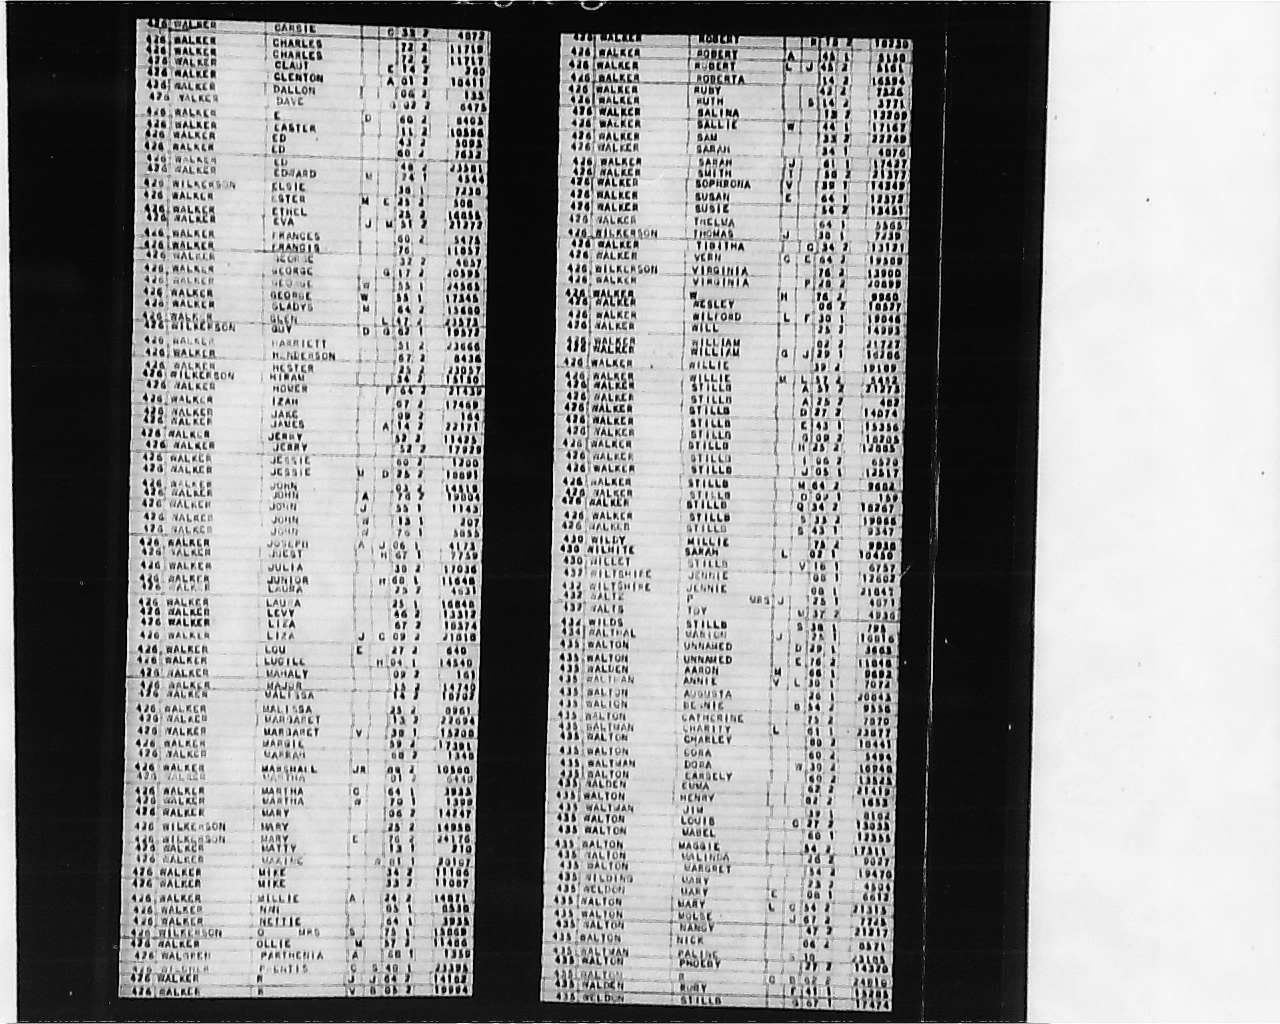 426 WALKER CARSIE G 35 2 4072
426 WALKER CHARLES 72 2 11719
426 WALKER CHARLES 72 2 11717
426 WALKER CLAUT E 14 2 260
426 WALKER CLENTON A 01 2 10411
426 WALKER DALLON 06 2 135
426 WALKER DAVE 02 2 6475
426 WALKER E D 60 2 8403
426 WALKER EASTER 11 2 10586
426 WALKER ED 43 2 5093
426 WALKER ED 60 2 7632
426 WALKER ED 48 2 23581
426 WALKER EDWARD M 74 1 4344
426 WILKERSON ELSIE 38 1 7230
426 WALKER ESTER M E 25 2 508
426 WALKER ETHEL 25 2 16855
426 WALKER EVA J M 51 2 21272
426 WALKER FRANCES 60 2 5475
426 WALKER FRANCIS 76 11057
426 WALKER GEORGE 37 2 4657
426 WALKER GEORGE G 17 2 20595
426 WALKER GEORGE W 55 1 24565
426 WALKER GEORGE W 55 1 17345
426 WALKER GLADYS M 64 2 13680
426 WALKER GLEN L 47 2 23573
426 WILKERSON GUY D G 62 1 19572
426 WALKER HARRIETT 51 2 23666
426 WALKER HENDERSON 67 2 8436
426 WALKER HESTER 25 2 23057
426 WILKERSON HIRAM 34 2 15150
426 WALKER HOMER F 64 2 21439
426 WALKER IZAH 67 2 17469
426 WALKER JAKE 09 2 164
426 WALKER JAMES A 14 2 22171
426 WALKER JERRY 52 2 11425
426 WALKER JERRY 52 2 17929
426 WALKER JESSIE 60 2 1200
426 WALKER JESSIE M D 25 2 10691
426 WALKER JOHN 03 2 14519
426 WALKER JOHN A 76 2 19804
426 WALKER JOHN J 55 1 1143
426 WALKER JOHN W 13 1 207
426 WALKER JOHN W 76 1 5055
426 WALKER JOSEPH A J 06 1 4173
426 WALKER JUEST H 67 1 7759
426 WALKER JULIA 30 2 17036
426 WALKER JUNIOR H 60 1 11648
426 WALKER LAURA 25 2 4631
426 WALKER LAURA 25 1 16848
426 WALKER LEVY 46 2 13312
426 WALKER LIZA 67 2 18374
426 WALKER LIZA J C 09 2 21818
426 WALKER LOU E 27 2 640
426 WALKER LUCILL H 04 1 14540
426 WALKER MAHALY 09 2 161
426 WALKER MAJOR 15 2 14740
426 WALKER MALISSA 14 2 16702
426 WALKER MALISSA 25 2 8961
426 WALKER MARGARET 13 2 22694
426 WALKER MARGARET V 38 1 15208
426 WALKER MARGIE 59 2 17391
426 WALKER MARRAH 60 2 1340
426 WALKER MARSHALL JR 08 2 10580
426 WALKER MARTHA 01 2 6440
426 WALKER MARTHA G 64 1 3935
426 WALKER MARTHA W 70 1 1399
426 WALKER MARY 06 2 14247
426 WILKERSON MARY 25 2 14958
426 WILKERSON MARY E 76 2 24176
426 WALKER MATTY 13 1 210
426 WALKER MAXINE R 01 1 20107
426 WALKER MIKE 34 2 11106
426 WALKER MIKE 33 2 11087
426 WALKER MILLIE A 24 2 14871
426 WALKER NAN 05 1 8530
426 WALKER NETTIE 64 1 3935
426 WILKERSON O MRS S 75 1 13869
426 WALKER OLLIE M 57 2 11486
426 WALDREN PARTHENIA A 68 1 1359
426 WILDNER PRENTIS C S 40 1 23395
426 WALKER R J J 04 2 14162
426 WALKER R V B 05 2 19994
426 WALKER ROBERT R 18 2 10230
426 WALKER ROBERT A 45 1 8150
426 WALKER ROBERT L J 45 2 5161
426 WALKER ROBERTA 14 2 16594
426 WALKER RUBY 42 2 7526
426 WALKER RUTH S 14 2 3771
426 WALKER SALINA 18 2 13209
426 WALKER SALLIE W 44 1 17167
426 WALKER SAM 33 2 22249
426 WALKER SARAH 34 1 4076
426 WALKER SARAH J 61 1 17427
426 WALKER SMITH T 50 2 21377
426 WALKER SOPHRONA V 39 1 14249
426 WALKER SUSAN E 64 1 12372
426 WALKER SUSIE 54 2 13451
426 WALKER THELMA 64 1 5565
426 WILKERSON THOMAS J 38 1 7239
426 WALKER TIBITHA G 34 2 13121
426 WALKER VERN G E 64 2 19509
426 WILKERSON VIRGINIA 76 2 13900
426 WALKER VIRGINIA P 28 2 20899
426 WALKER W H 76 2 9960
426 WALKER WESLEY 06 2 18577
426 WALKER WILFORD L F 30 1 19046
426 WALKER WILL 25 2 14993
426 WALKER WILLIAM 02 2 21727
426 WALKER WILLIAM G J 29 1 16286
426 WALKER WILLIE 39 2 19189
426 WALKER WILLIE M L 57 2 5452
426 WALKER STILLB A 51 2 21271
426 WALKER STILLB A 25 2 482
426 WALKER STILLB D 27 2 14074
426 WALKER STILLB E 43 1 15356
426 WALKER STILLB G 09 2 16205
426 WALKER STILLB H 25 2 12085
426 WALKER STILLB I 06 2 6520
426 WALKER STILLB J 05 1 12517
426 WALKER STILLB M 64 2 9682
426 WALKER STILLB O 09 1 159
426 WALKER STILLB Q 34 2 18267
426 WALKER STILLB S 33 2 19066
426 WALKER STILLB S 43 1 9347
430 WILDY MILLIE 75 2 9938
430 WILHITE SARAH L 02 1 10450
430 WILLET STILLB V 16 1 6757
432 WILTSHIRE JENNIE 08 1 12602
432 WILTSHIRE JENNIE 08 1 21047
432 WALTZ P MRS J 25 1 4071
432 WALTS TOY M 37 2 4936
432 WILDS STILLB S 38 1 791
434 WALTHAL MARION J 25 1 10816
435 WALTON UNNAMED D 29 1 3665
435 WALTON UNNAMED E 76 2 11048
435 WALDEN AARON M 66 1 9692
435 WALTMAN ANNIE V L 30 1 7072
435 WALTON AUGUSTA 26 1 20643
435 WALTON BENNIE B 54 2 9556
435 WALTON CATHERINE 75 2 7570
435 WALTMAN CHARITY L 61 1 23077
435 WALTON CHARLEY 80 2 10441
435 WALTON CORA 60 2 3494
435 WALTMAN DORA W 30 2 16048
435 WALTON EARSELY 60 2 13525
435 WALDEN EMMA 62 2 21419
435 WALTON HENRY 02 2 1653
435 WALTMAN JIM 39 1 8102
435 WALTON LOUIS G 27 2 13033
435 WALTON MABEL 60 1 12356
435 WALTON MAGGIE 54 2 17311
435 WALTON MALINDA 26 2 9027
435 WALTON MARGRET 54 2 19470
435 WILDING MARY 23 2 4505
435 WELDON MARY E 08 1 6612
435 WALTON MARY L C 54 2 21315
435 WALTON MOLSE J 67 2 7725
435 WALTON NANCY 47 2 21217
435 WALTON NICK 06 2 8571
435 WALTMAN PALINE S 18 23185
435 WALTON PHOEBY 27 2 14320
435 WALTON R C B 02 2 24810
435 WALDEN RUBY F 41 1 15285
435 WELDON STILLB G 67 1 17474